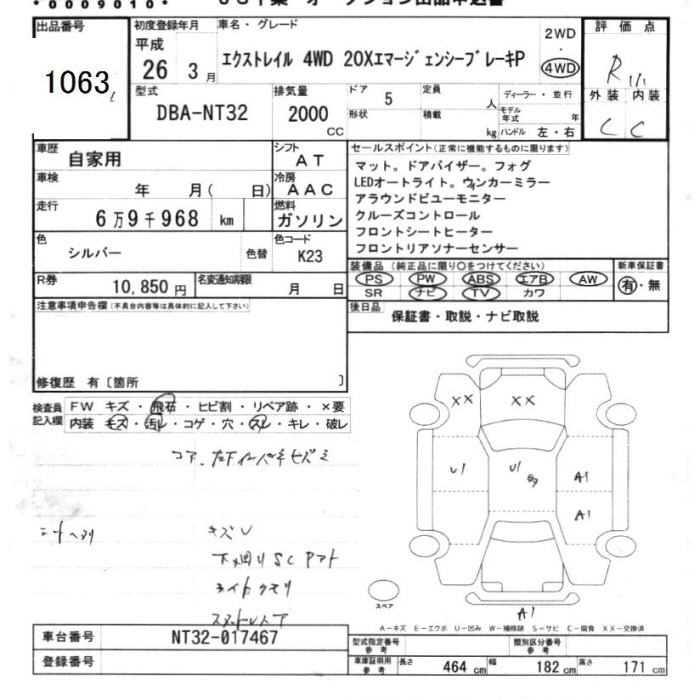 *0009010*
出品番号
1063
初度登録年月
平成
26 3月
車名・グレード
エクストレイル 4WD 20XエマージェンシーブレーキP
2WD
・
4WD
評価点
R 1/1
外装 内装
C C
型式
DBA-NT32
排気量
2000
CC
ドア 5
形状
定員 人
積載 kg
ディーラー・並行
モデル年式 年
ハンドル 左・右
車歴 自家用
シフト AT
車検 年 月( 日)
冷房 AAC
走行 6万9千968 km
燃料 ガソリン
色 シルバー 色替
色コード K23
R券 10,850円
名変通知期限 月 日
セールスポイント(正常に機能するものに限ります)
マット。ドアバイザー。フォグ
LEDオートライト。ウィンカーミラー
アラウンドビューモニター
クルーズコントロール
フロントシートヒーター
フロントリアソナーセンサー
装備品(純正品に限り○をつけてください)
PS PW ABS エアB AW
SR ナビ TV カワ
新車保証書
有・無
後日品
保証書・取説・ナビ取説
注意事項申告欄(不具合内容等は具体的に記入して下さい)
修復歴 有〔箇所 〕
検査員記入欄
FW キズ・飛石・ヒビ割・リペア跡・×要
内装 キズ・汚レ・コゲ・穴・スレ・キレ・破レ
キズU
下廻りSC
ライトクモリ
XX
XX
U1
U1
A1
A1
A1
スペア
A-キズ E-エクボ U-凹み W-補修跡 S-サビ C-腐食 XX-交換済
車台番号 NT32-017467
登録番号
型式指定番号 参考
類別区分番号 参考
車庫証明用 参考
長さ 464 cm 幅 182 cm 高さ 171 cm